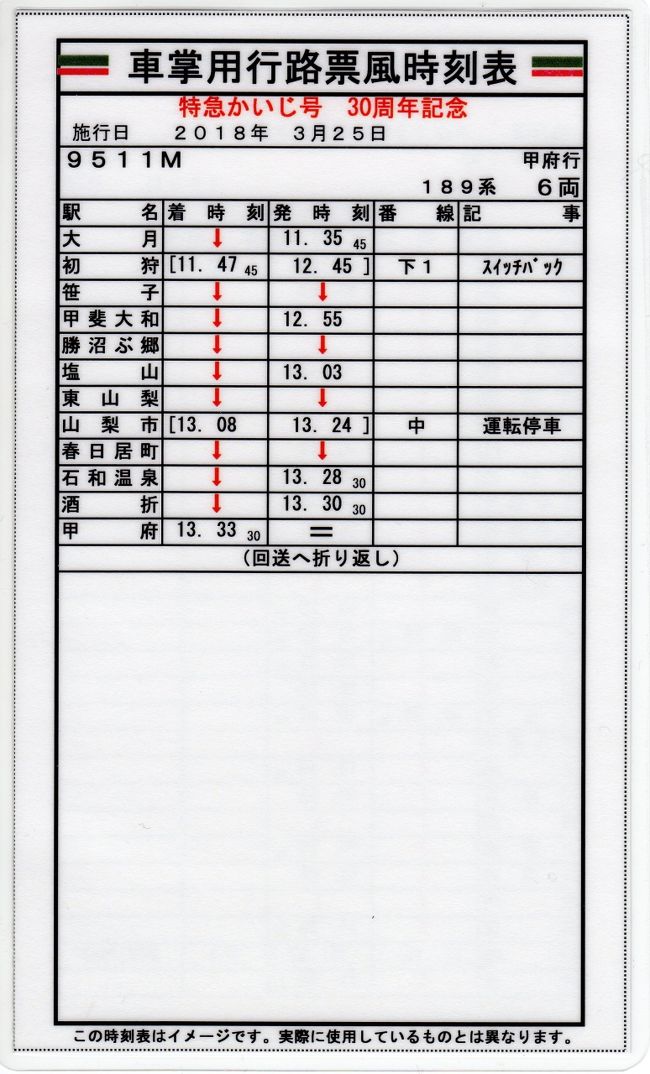 車掌用行路票風時刻表
特急かいじ号 30周年記念
施行日 2018年 3月25日
9511M 甲府行
189系 6両
駅名 着時刻 発時刻 番線 記事
大月 ↓ 11. 35 45
初狩 [11. 47 45 12. 45 ] 下1 スイッチバック
笹子 ↓ ↓
甲斐大和 ↓ 12. 55
勝沼ぶ郷 ↓ ↓
塩山 ↓ 13. 03
東山梨 ↓ ↓
山梨市 [13. 08 13. 24 ] 中 運転停車
春日居町 ↓ ↓
石和温泉 ↓ 13. 28 30
酒折 ↓ 13. 30 30
甲府 13. 33 30 =
(回送へ折り返し)
この時刻表はイメージです。実際に使用しているものとは異なります。